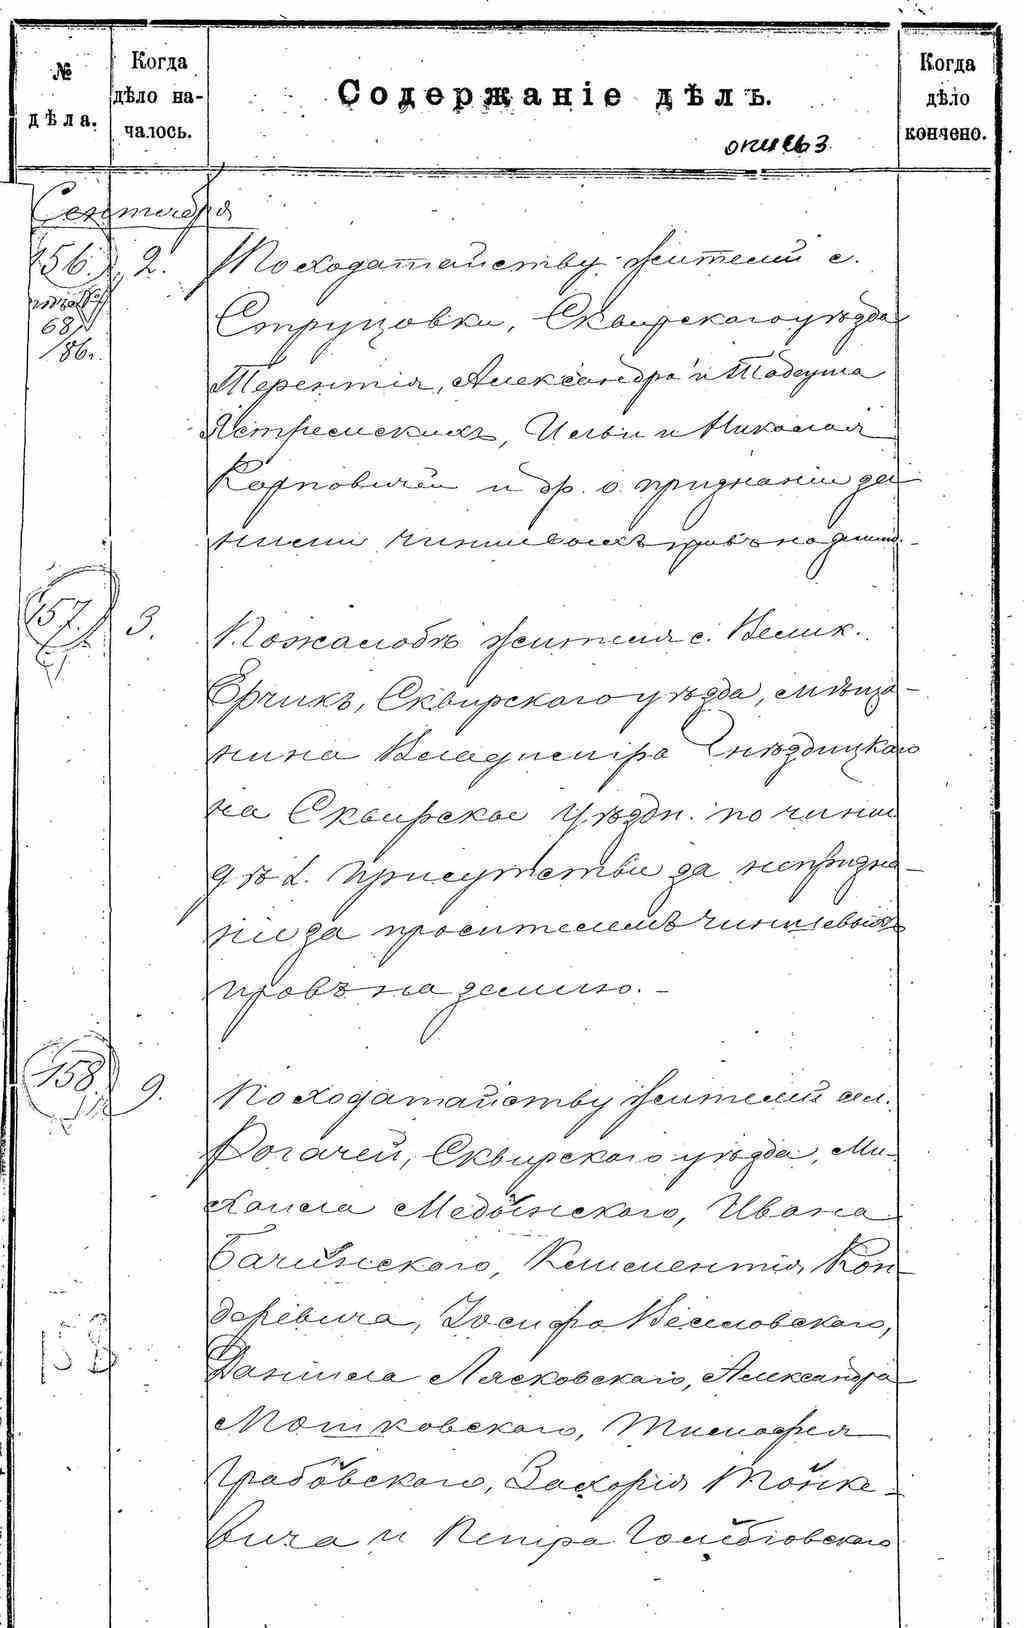 № дѣла.
Когда дѣло на-чалось.
Содержаніе дѣлъ.
Когда дѣло кончено.
опись 3
Сентября
156. 2. По ходатайству жителей с.
68/86г.
Струцовки, Сквирскаго уѣзда
Терентія, Александра и Тадеуша
Ястремскихъ, Ильи и Николая
Карповичей и др. о признаніи за
ними чиншевыхъ правъ на землю.
157. 3. По жалобѣ жителя с. Велик.
Ерчикъ, Сквирскаго уѣзда, мѣща-
нина Владиміра Гнѣздицкаго
на Сквирское Уѣздн. по чинш.
дѣл. Присутствіе за непризна-
ніе за просителемъ чиншевыхъ
правъ на землю. -
158 9. По ходатайству жителей сел.
Рогачей, Сквирскаго уѣзда, Ми-
хаила Медынскаго, Ивана
Бачинскаго, Климентія Кон-
деревича, Іосифа Велиловскаго,
158
Даниила Лясковскаго, Александра
Мошковскаго, Тимофея
Грабовскаго, Захарія Тонке-
вича и Петра Голембіовскаго